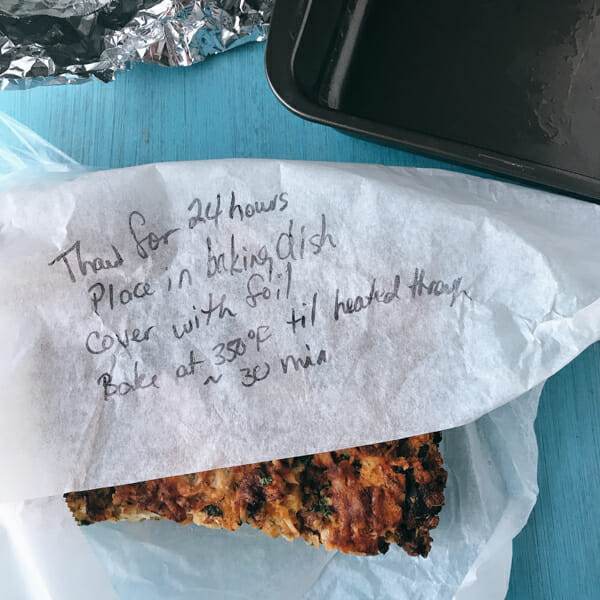 Thaw for 24 hours
Place in baking dish
Cover with foil
Bake at 350°F til heated through
~ 30 min